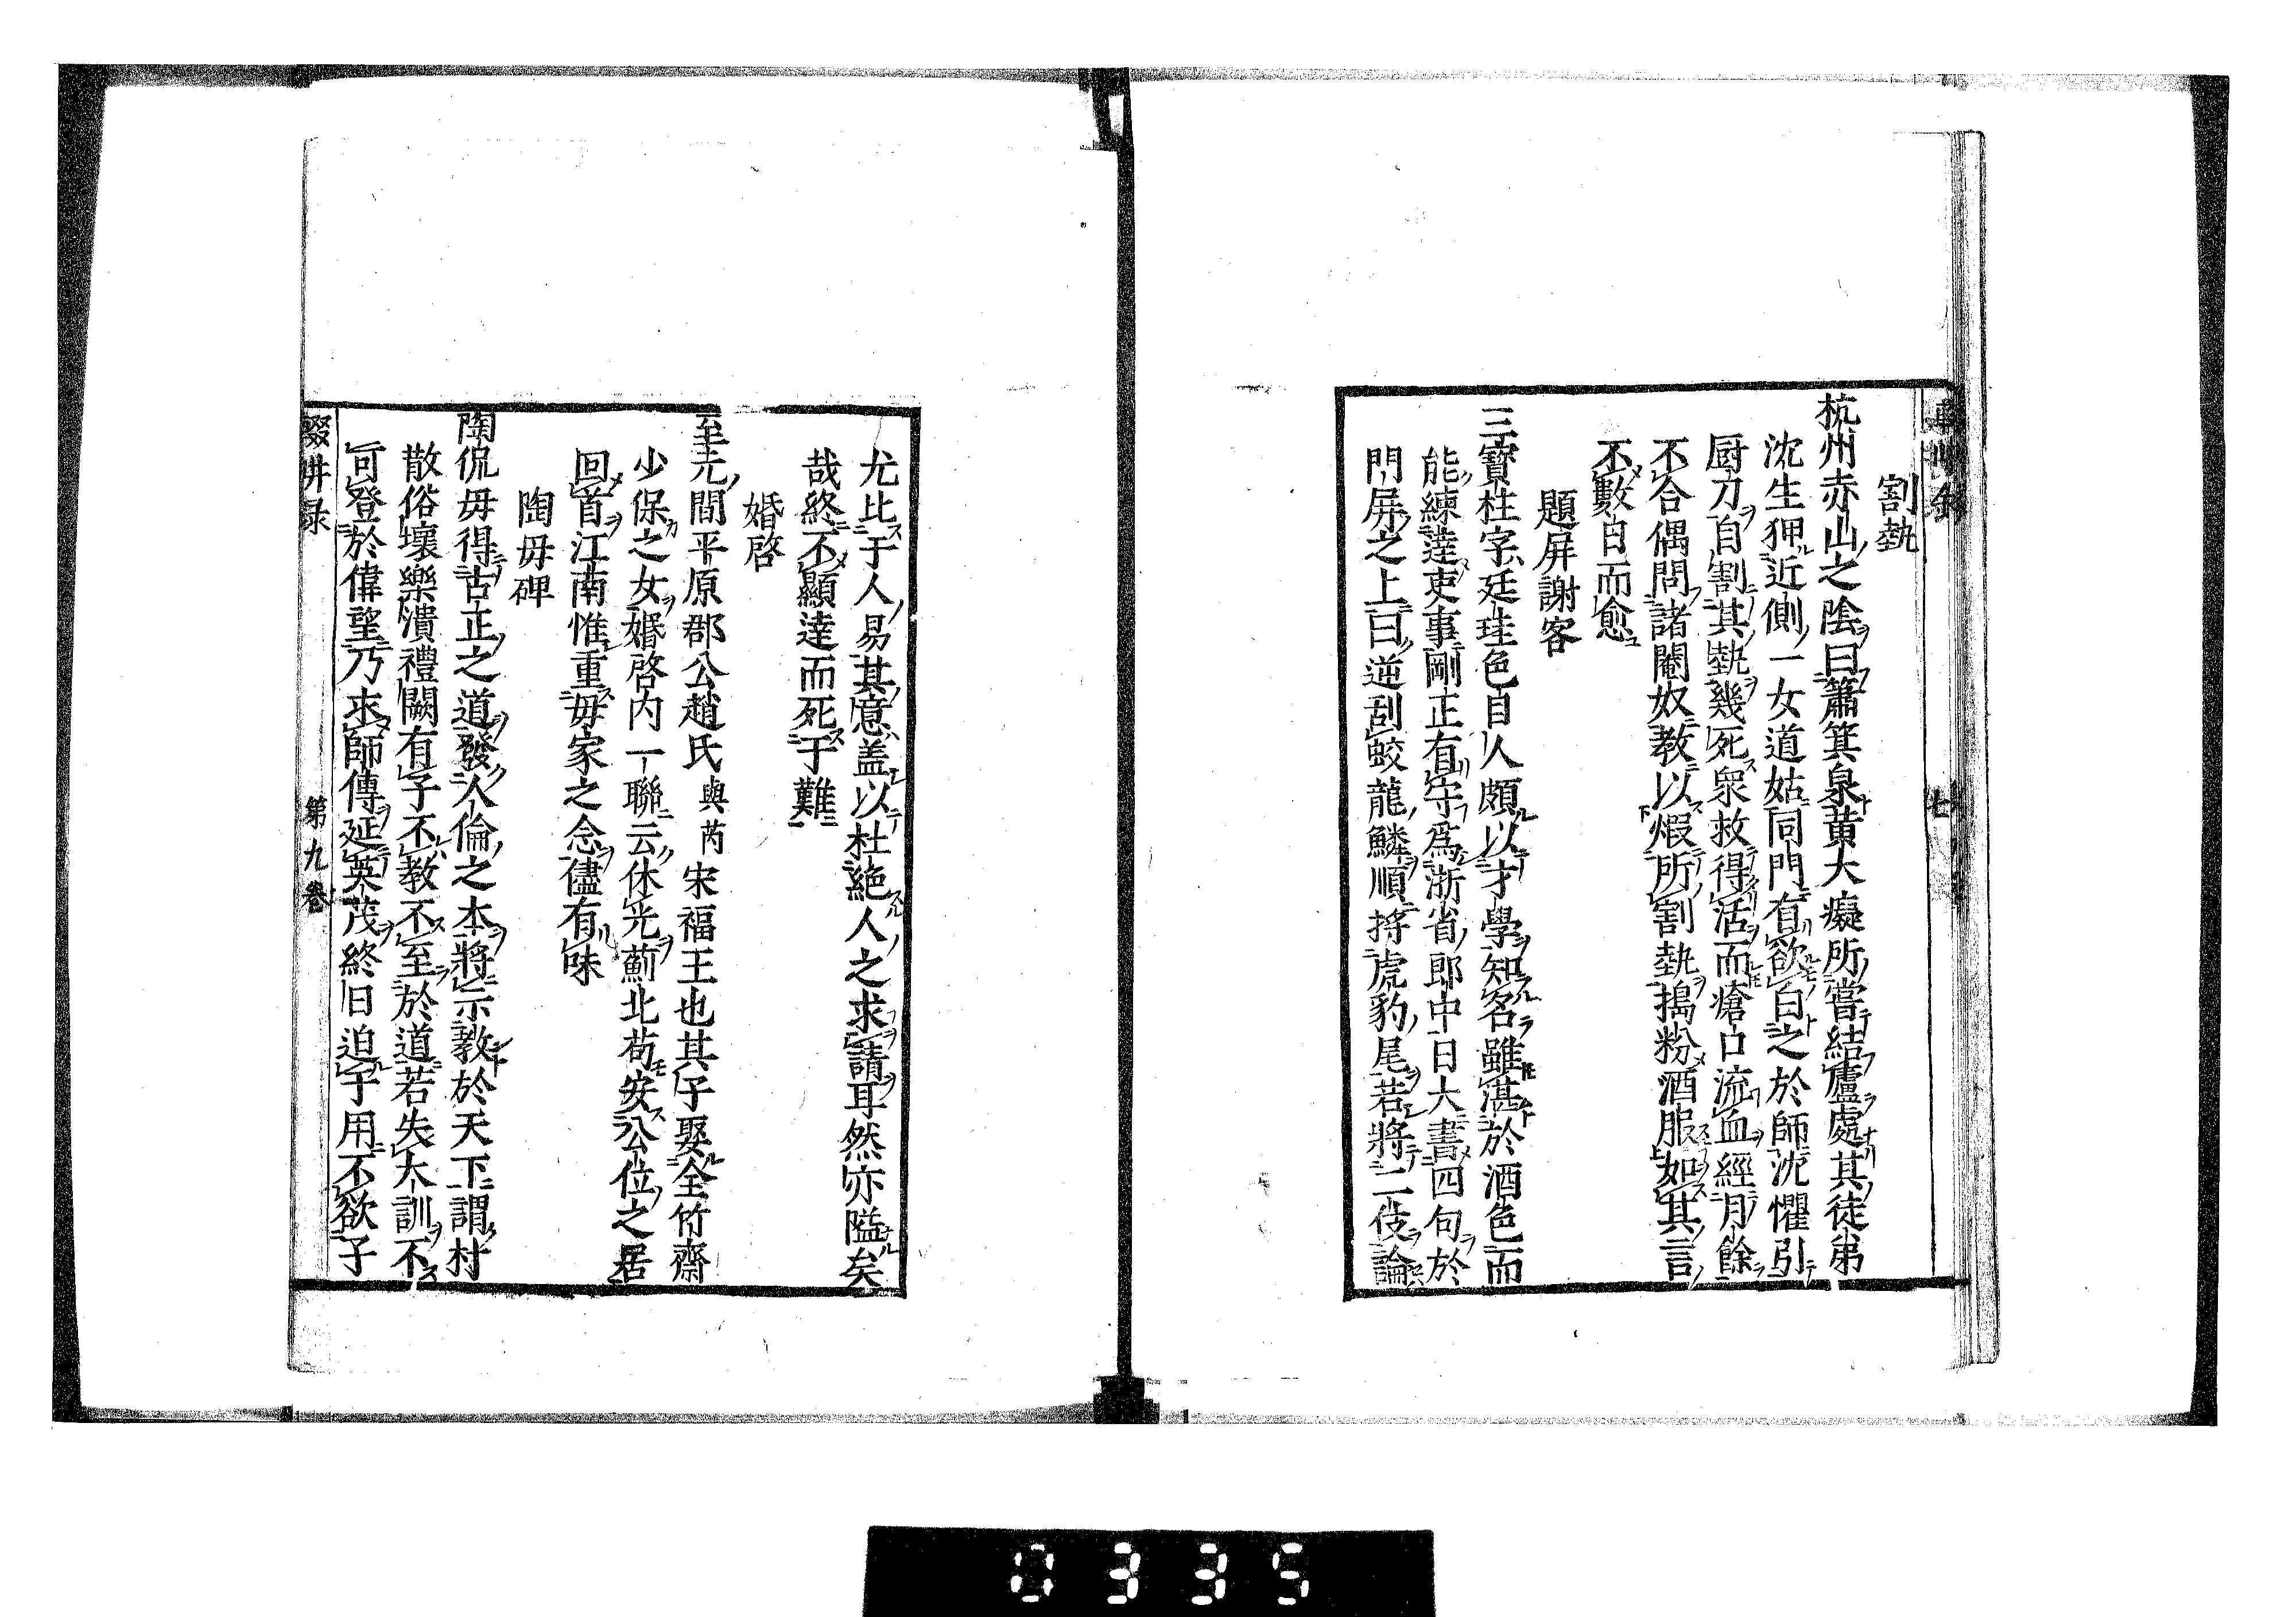 割勢
杭州赤山之陰曰簫箕泉黄大癡所嘗結廬處其徒弟
沈生狎近側一女道姑同門有欲白之於師沈懼引
厨刀自割其勢幾死衆救得活而瘡口流血經月餘
不合偶問諸閹奴教以煆所割勢搗粉酒服如其言
不數日而愈
題屏謝客
三寶柱字廷珪色目人頗以才學知名雖湛於酒色而
能練達吏事剛正有守爲浙省郎中日大書四句於
門屏之上曰逆刮蛟龍鱗順捋虎豹尾若將二伎論
七
尤比于人易其意盖以杜絶人之求請耳然亦隘矣
哉終不顯達而死于難
婚啓
至元間平原郡公趙氏與芮宋福王也其子娶全竹齋
少保之女婚啓内一聯云休光薊北苟安公位之居
回首江南惟重毋家之念儘有味
陶毋碑
陶侃毋得古正之道發人倫之本將示教於天下謂村
散俗壞樂潰禮闕有子不教不至於道若失大訓不
可登於偉望乃求師傳延英茂終旧迫于用不欲子
輟耕録
第九卷
0335